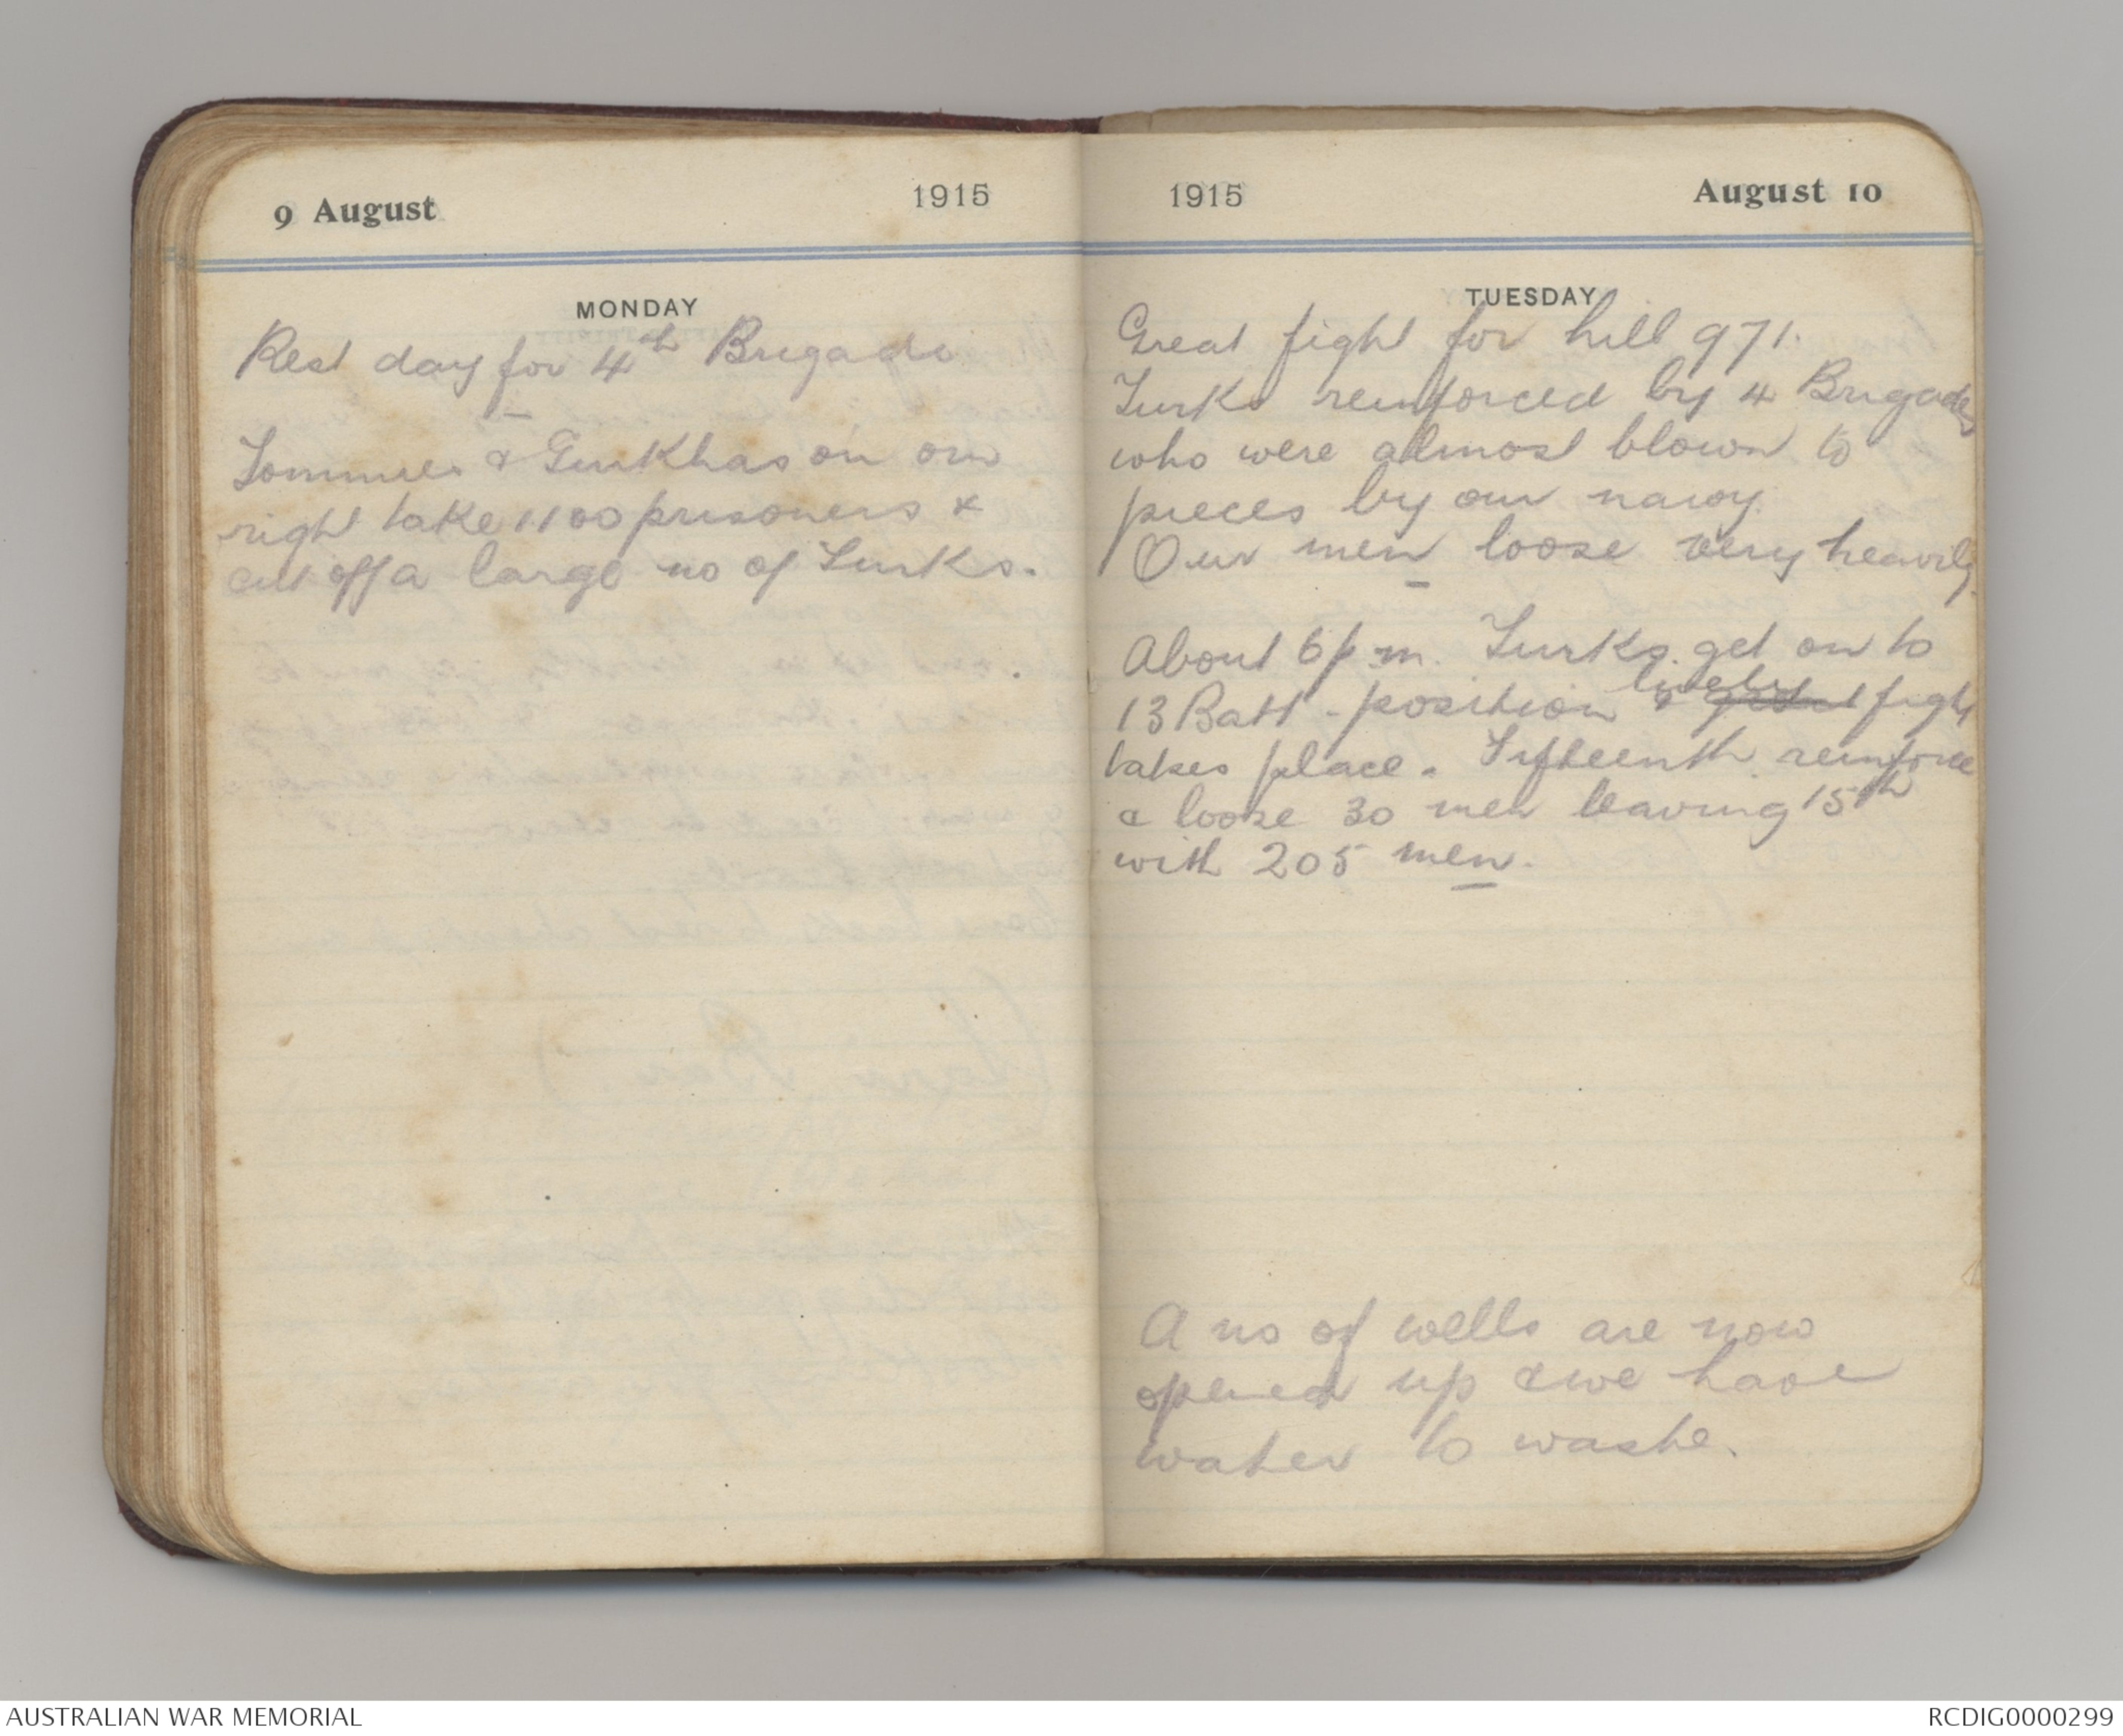 9 August 1915
MONDAY
Rest day for 4th Brigade
Tommies & Gurkhas on our
right take 1100 prisoners &
cut off a large no of Turks.
1915 August 10
TUESDAY
Great fight for hill 971.
Turks reinforced by 4 Brigades
who were almost blown to
pieces by our navy.
Our men loose very heavily
About 6 p.m. Turks get on to
13 Batt. position & lively fight
takes place. Fifteenth reinforce
& loose 30 men leaving 15th
with 205 men.
A no of wells are now
opened up & we have
water to washe.
AUSTRALIAN WAR MEMORIAL RCDIG0000299